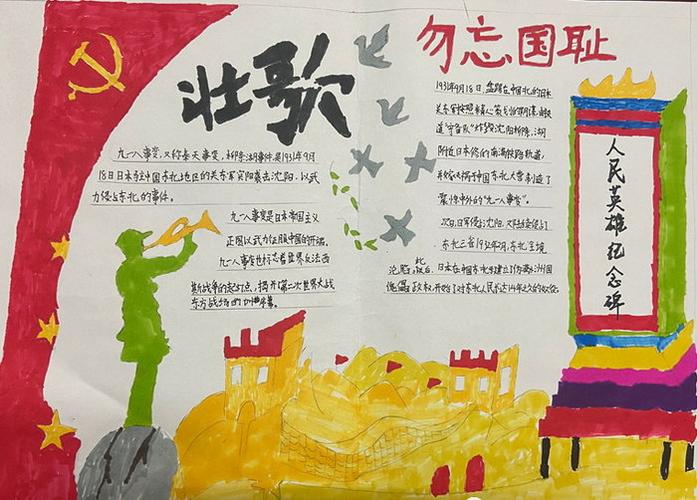 壮歌
勿忘国耻
九一八事变,又称奉天事变,柳条湖事件,是1931年9月
18日日本在中国东北地区的关东军突然袭击沈阳,以武
力侵占东北的事件。
九一八事变是日本帝国主义
正图以武力征服中国的开端。
九一八事变也标志着世界反法西
斯战争的起点,揭开了第二次世界大战
东方战场的序幕。
1931年9月18日,盘踞在中国东北的日本
关东军按照精心策划的阴谋,由铁
道“守备队”炸毁沈阳柳条湖
附近日本修的南满铁路轨道,
并嫁祸于中国东北大营,制造了
震惊中外的“九一八事变”。
次日,日军侵占沈阳,又陆续侵占了
东北三省。1932年2月,东北全境
沦陷,此后,日本在中国东北建立了伪满洲国
傀儡政权,开始了对东北人民长达14年之久的
人民英雄纪念碑